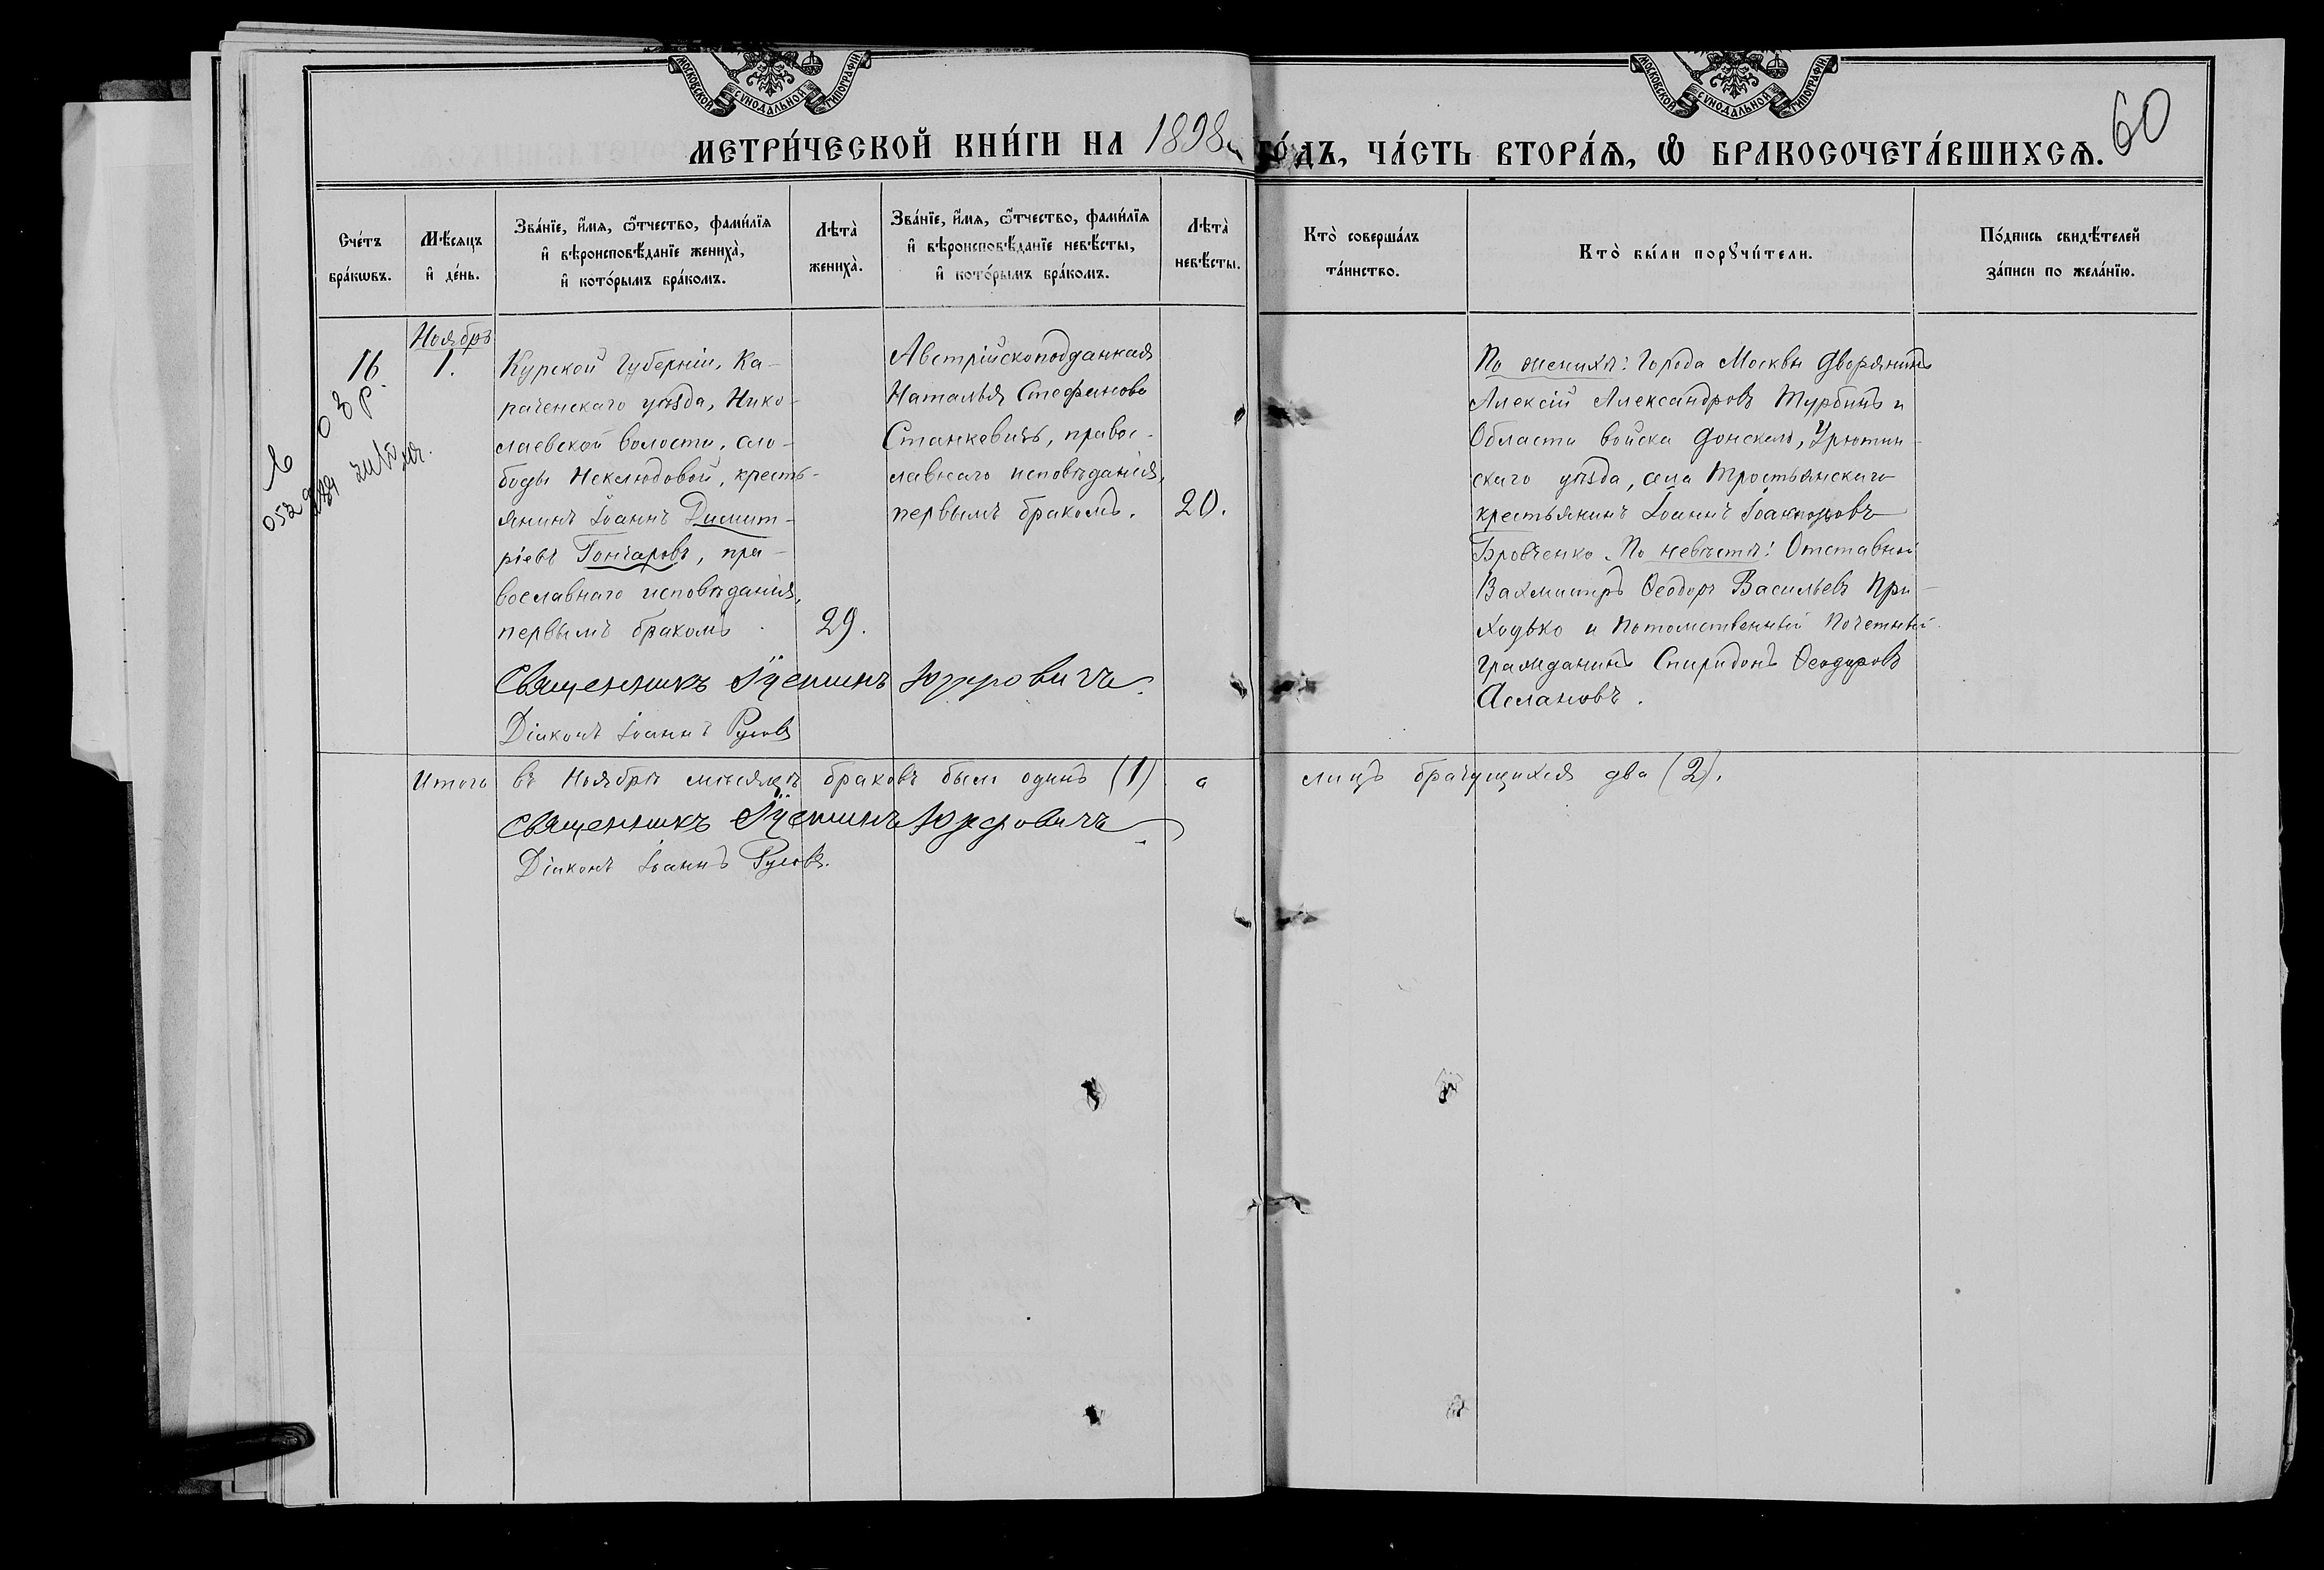 МОСКОВСКОЙ СѴНОДАЛЬНОЙ ТИПОГРАФІИ
МОСКОВСКОЙ СѴНОДАЛЬНОЙ ТИПОГРАФІИ
60
МЕТРИ́ЧЕСКОЙ КНИ́ГИ НА 1898 ГО́ДЪ, ЧА́СТЬ ВТОРА́Ѧ, Ѡ҆ БРАКОСОЧЕТА́ВШИХСѦ.
Сче́тъ
бра́кѡвъ.
Мѣ́сяцъ
и҆ де́нь.
Зва́нїе, и҆́мѧ, ѻ҆́тчество, фами́лїѧ
и҆ вѣроисповѣ́данїе жениха̀,
и҆ кото́рымъ бра́комъ.
Лѣта̀
жениха̀.
Зва́нїе, и҆́мѧ, ѻ҆́тчество, фами́лїѧ
и҆ вѣроисповѣ́данїе невѣ́сты,
и҆ кото́рымъ бра́комъ.
Лѣта̀
невѣ́сты.
Кто̀ соверша́лъ
та́инство.
Кто̀ бы́ли порꙋчи́тели.
По́дпись свидѣ́телей
за́писи по жела́нїю.
Ноябрь
16.
1.
Курской Губерніи, Ка-
рачевскаго уѣзда, Нико-
лаевской волости, сло-
боды Неклюдовой, кресть-
янинъ Іоаннъ Димит-
ріевъ Гончаровъ, пра-
вославнаго исповѣданія,
первымъ бракомъ.
29.
Австрійскоподданная
Наталья Стефанова
Станкевичъ, правос-
лавнаго исповѣданія,
первымъ бракомъ.
20.
По женихѣ: Города Москвы Дворянинъ
Алексій Александровъ Турбинъ и
Области войска Донскаго, Урюпин-
скаго уѣзда, села Тростьянскаго
крестьянинъ Іоаннъ
Бровченко. По невѣстѣ: Отставной
Вахмистръ Ѳеодоръ Васильевъ При-
ходько и Потомственный Почетный
гражданинъ Спиридонъ Ѳеодоровъ
Аслановъ.
Священникъ Іустинъ
Діаконъ Іоаннъ
Итого въ Ноябрѣ мѣсяцѣ браковъ былъ одинъ (1) а лицъ брачущихся два (2).
Священникъ Іустинъ
Діаконъ Іоаннъ